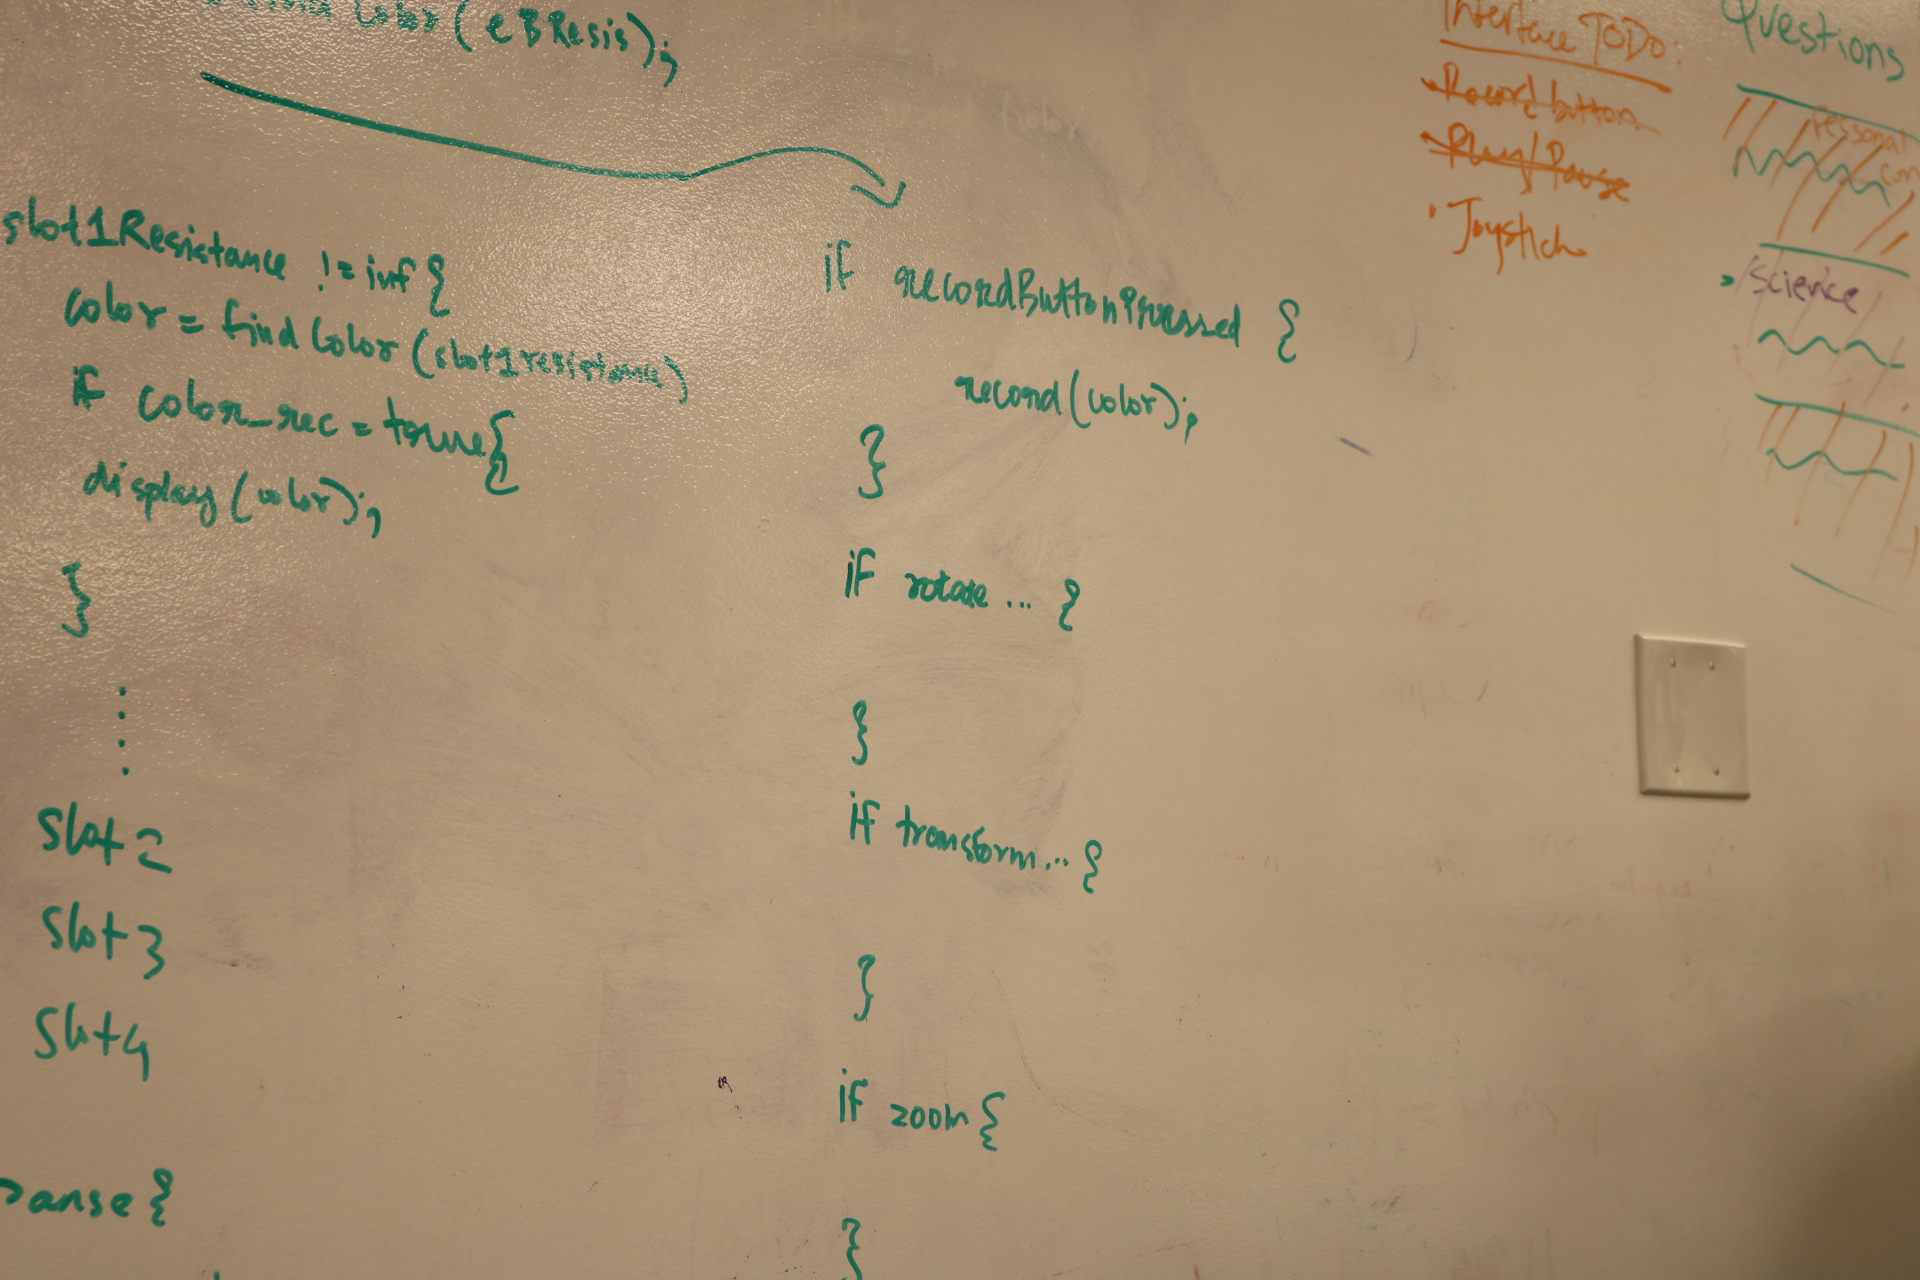 find Color (eBResis);
slot1Resistance != inf {
color = find Color (slot1resistance)
if color_rec = true {
display (color);
}
slot 2
slot 3
slot 4
{
if recordButtonPressed {
record (color);
}
if rotate ... {
}
if transform ... {
}
if zoom {
}
Interface TODO:
Record button
Play/Pause
Joystick
Questions
Personal
science